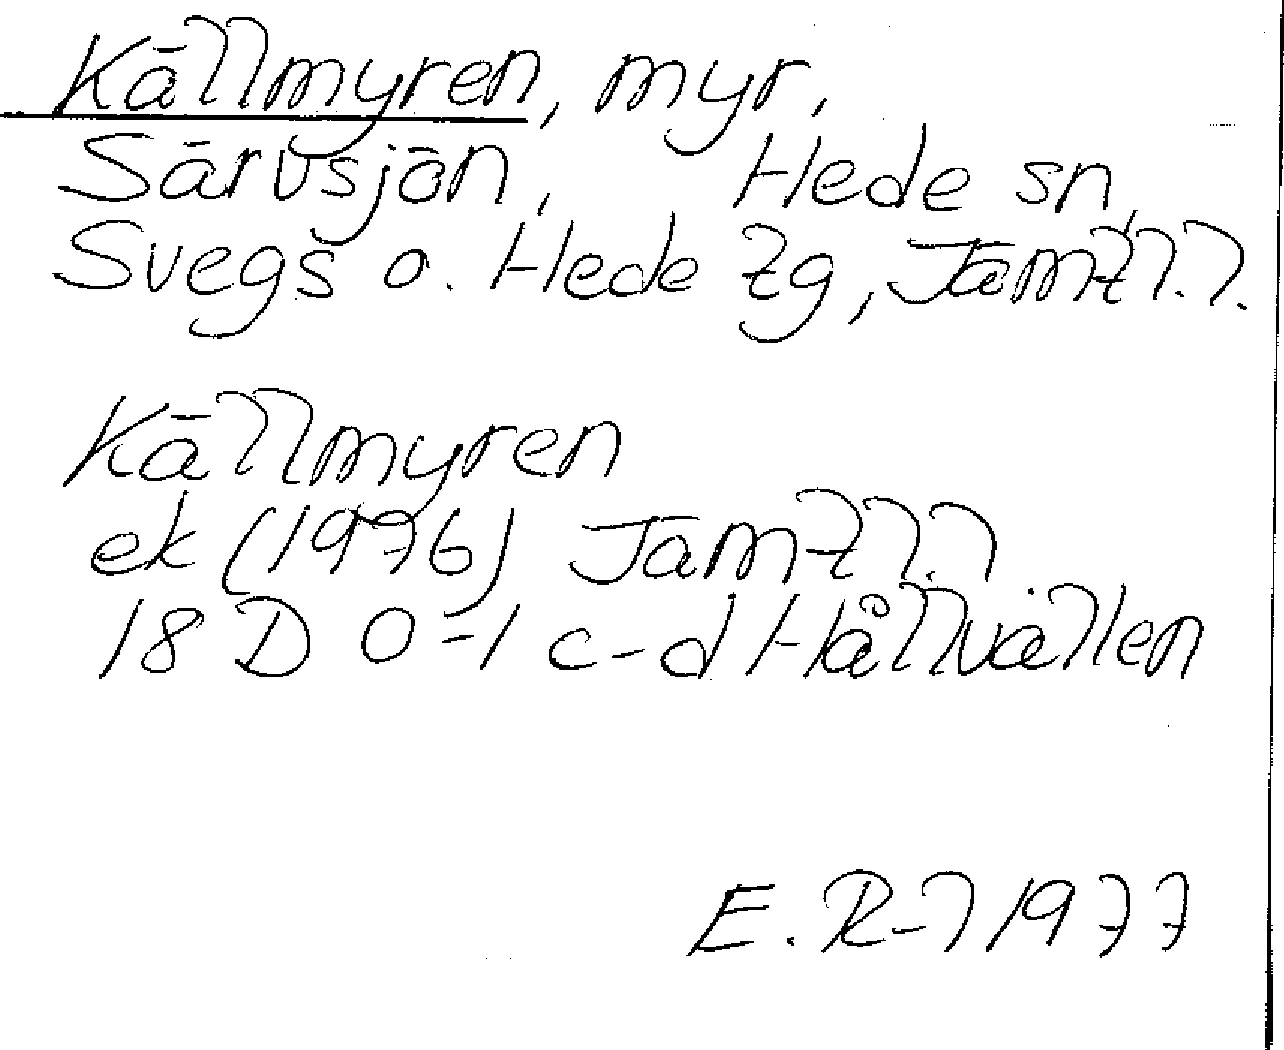 Källmyren, myr,
Särvsjön, Hede sn,
Svegs o. Hede tg, Jämtl.l.
Källmyren
ek (1976) Jämtl.l.
18 D 0-1 c-d Hållvallen
E. R-l 1977